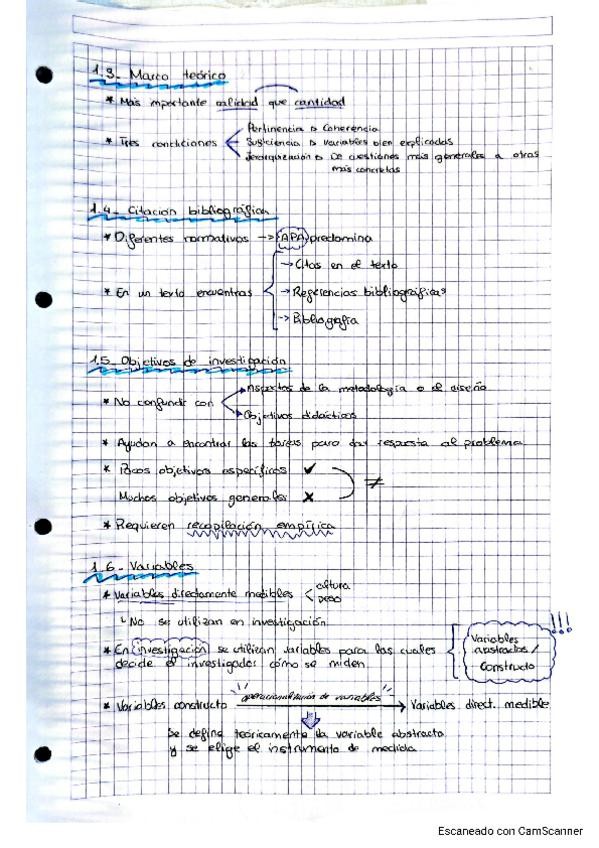 1.3- Marco teórico
* Más importante calidad que cantidad
* Tres condiciones
Pertinencia → Coherencia
Suficiencia → Variables bien explicadas
Jerarquización → De cuestiones más generales a otras
más concretas
1.4- Citación bibliográfica
* Diferentes normativos → APA predomina
* En un texto encuentras
→ Citas en el texto
→ Referencias bibliográficas
→ Bibliografía
1.5- Objetivos de investigación
* No confundir con
Aspectos de la metodología o el diseño
Objetivos didácticos
* Ayudan a encontrar las tareas para dar respuesta al problema
* Pocos objetivos específicos ✓
Muchos objetivos generales ✗
≠
* Requieren recopilación empírica
1.6- Variables
* Variables directamente medibles < altura
peso
↳ No se utilizan en investigación.
* En investigación se utilizan variables para las cuales
decide el investigador cómo se miden.
Variables
abstractas /
Constructo
!!!
* Variables constructo operacionalización de variables → Variables direct. medible
Se define teóricamente la variable abstracta
y se elige el instrumento de medida.
Escaneado con CamScanner